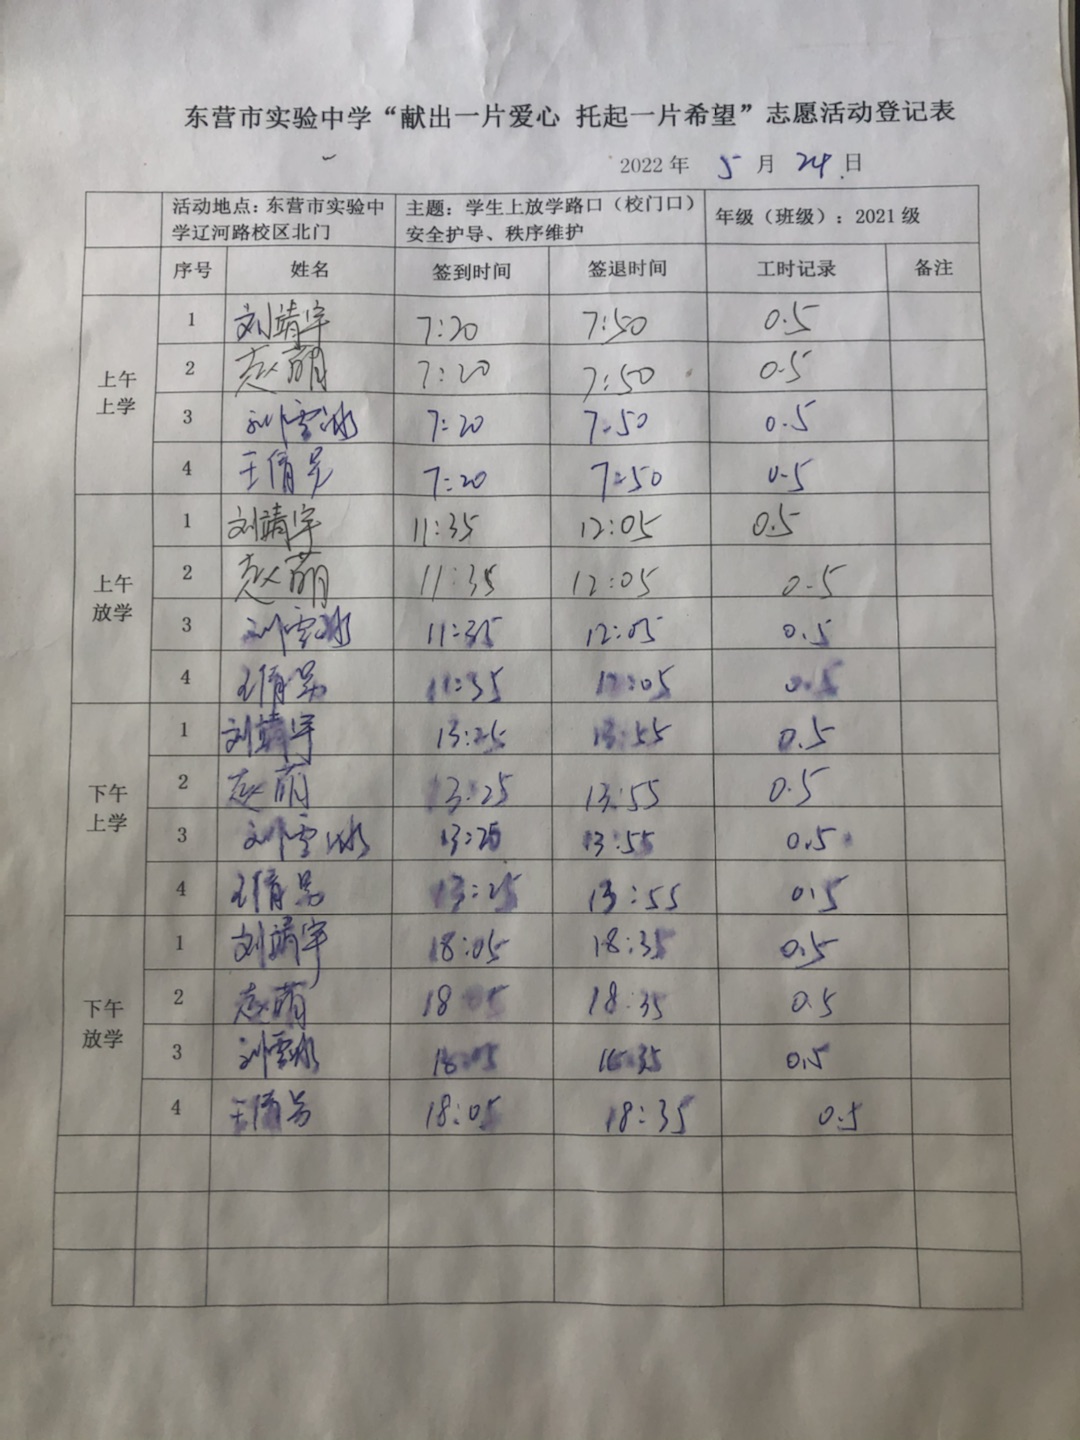 东营市实验中学“献出一片爱心 托起一片希望”志愿活动登记表
2022 年 5 月 24 日
活动地点：东营市实验中学辽河路校区北门 主题：学生上放学路口（校门口）安全护导、秩序维护 年级（班级）：2021 级
序号 姓名 签到时间 签退时间 工时记录 备注
上午上学
1 刘靖宇 7:20 7:50 0.5
2 赵萌 7:20 7:50 0.5
3 刘雪冰 7:20 7:50 0.5
4 王倩 7:20 7:50 0.5
上午放学
1 刘靖宇 11:35 12:05 0.5
2 赵萌 11:35 12:05 0.5
3 刘雪冰 11:35 12:05 0.5
4 王倩 11:35 12:05 0.5
下午上学
1 刘靖宇 13:25 13:55 0.5
2 赵萌 13:25 13:55 0.5
3 刘雪冰 13:25 13:55 0.5
4 王倩 13:25 13:55 0.5
下午放学
1 刘靖宇 18:05 18:35 0.5
2 赵萌 18:05 18:35 0.5
3 刘雪冰 18:05 18:35 0.5
4 王倩 18:05 18:35 0.5